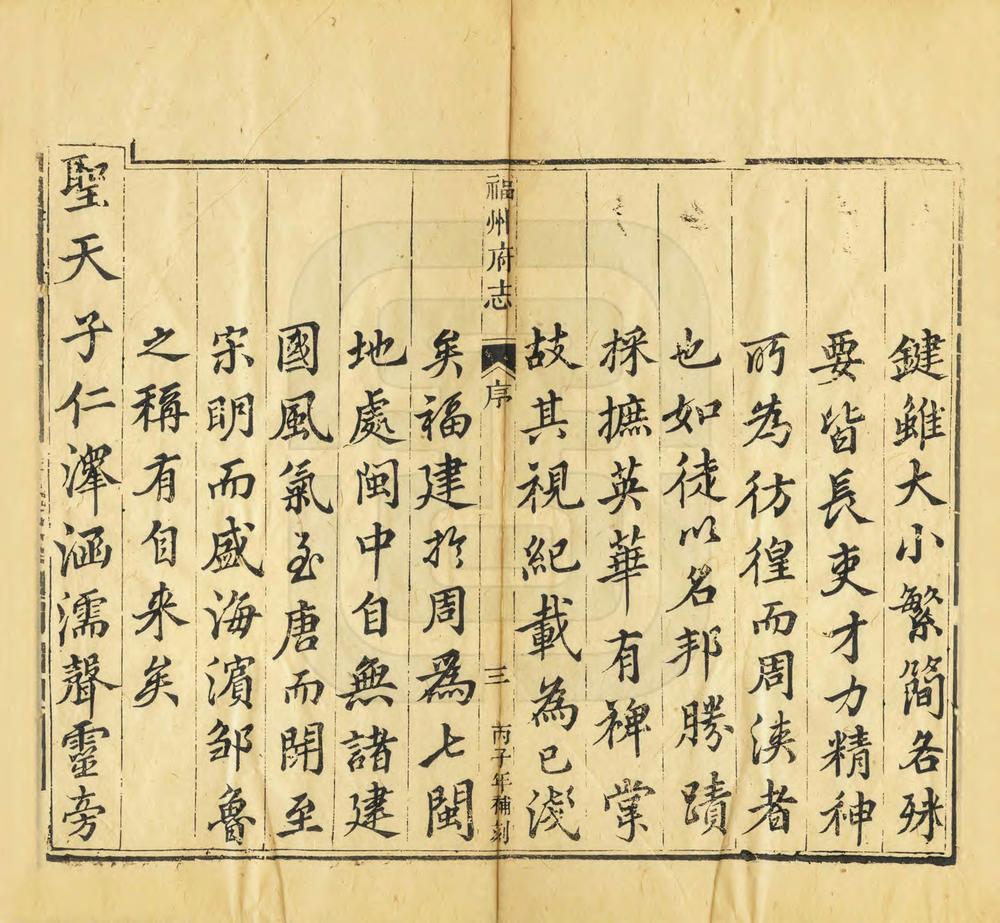 鍵雖大小繁簡各殊
要皆長吏才力精神
所為彷徨而周浹者
也如徒以名邦勝蹟
採摭英華有裨掌
故其視紀載為已淺
福州府志 序 三 丙子年補刻
矣福建於周爲七閩
地處閩中自無諸建
國風氣至唐而開至
宋明而盛海濱邹魯
之稱有自来矣
聖天子仁澤涵濡聲靈旁